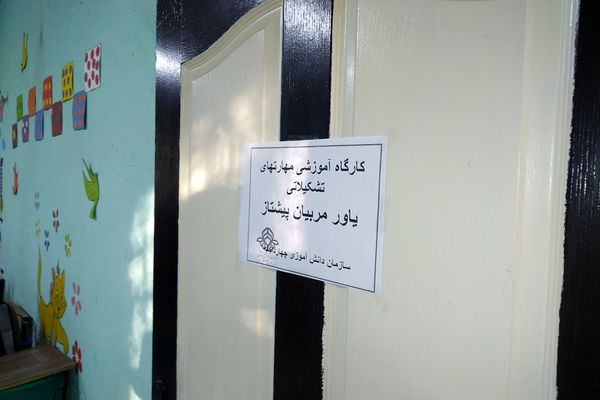 کارگاه آموزشی مهارتهای
تشکیلاتی
یاور مربیان پیشتاز
سازمان دانش آموزی